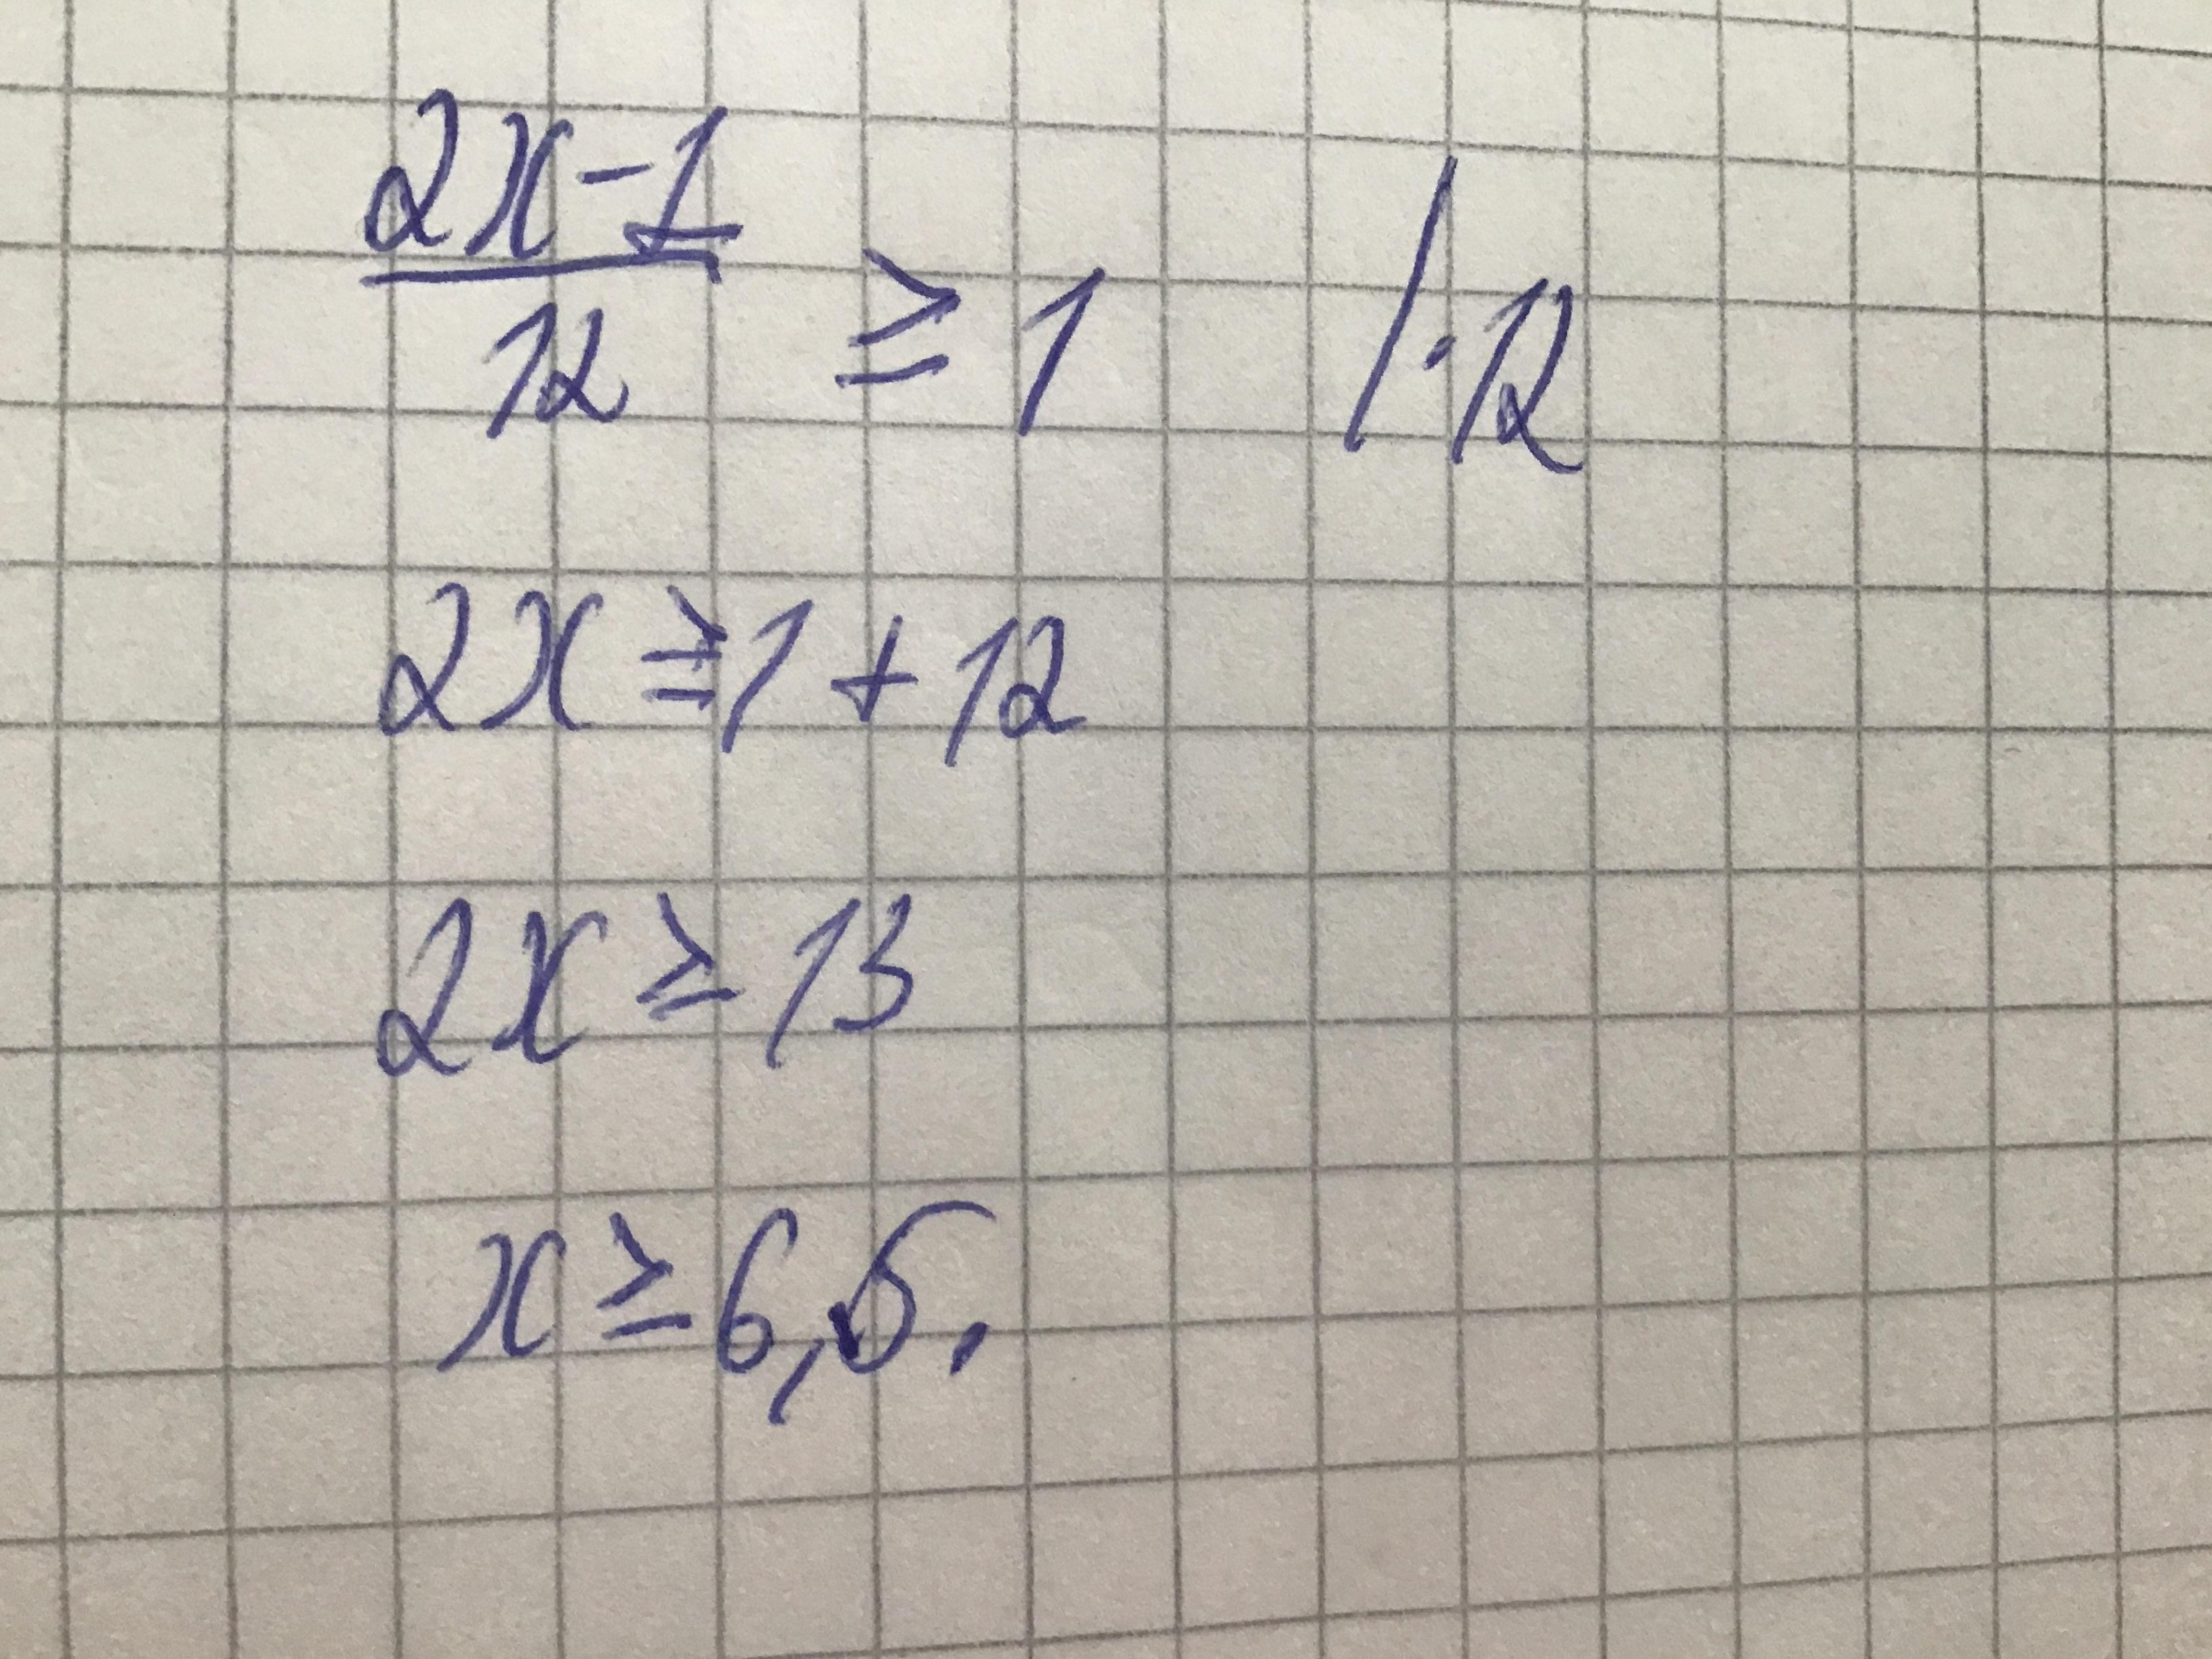 (2x-1)/12 ≥ 1 /·12
2x ≥ 1 + 12
2x ≥ 13
x ≥ 6,5.